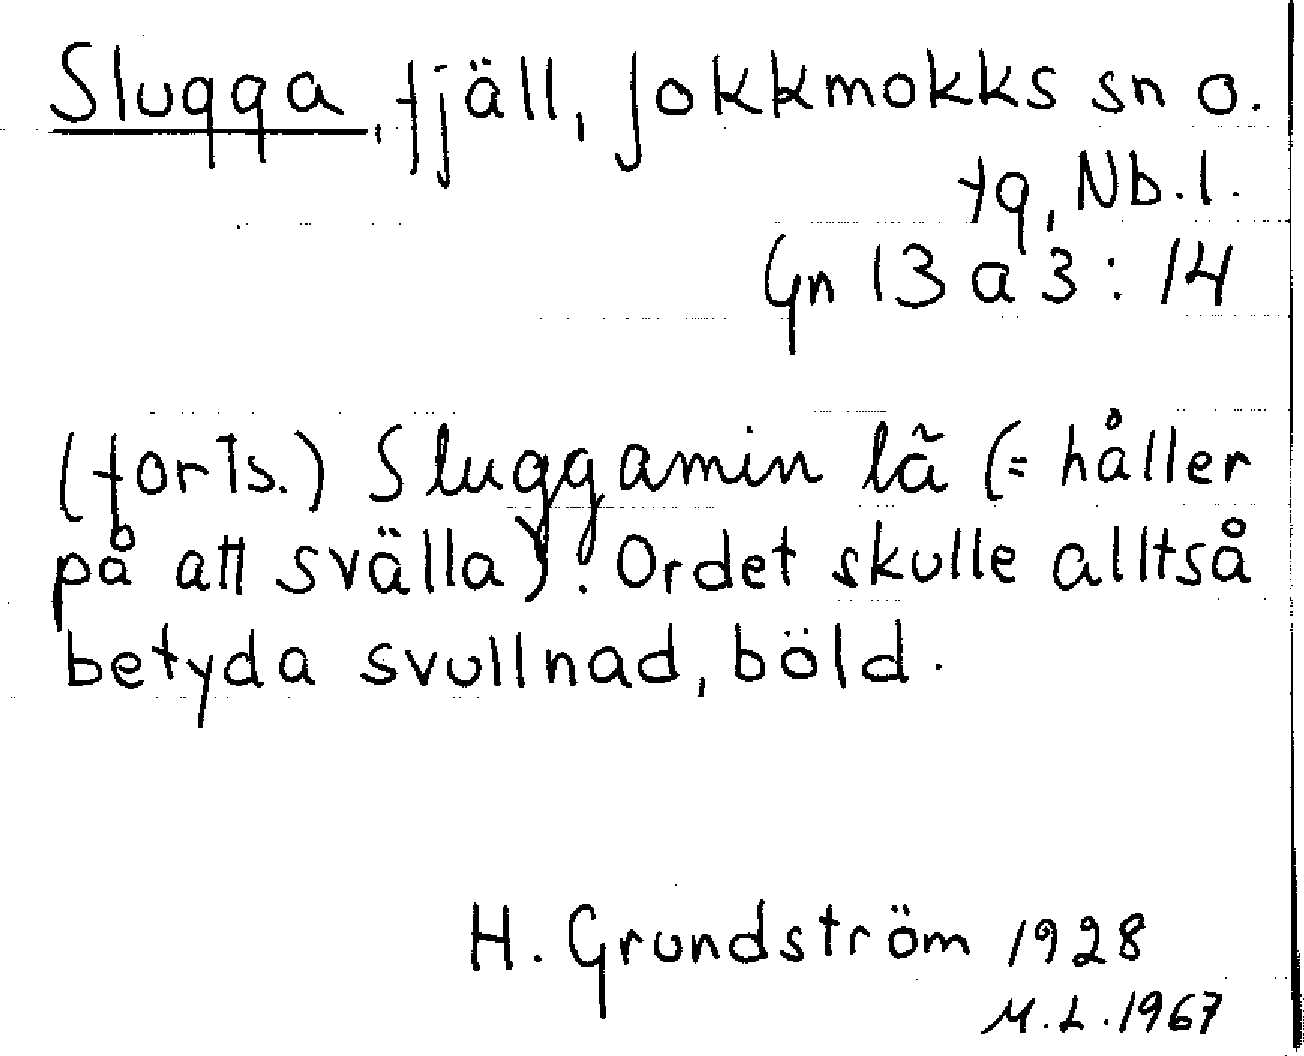 Slugga, fjäll, Jokkmokks sn o.
tg, Nb.l.
Gn 13 a 3 : 14
(forts.) Sluggamin lā̃ (= håller
på att svälla)! Ordet skulle alltså
betyda svullnad, böld.
H. Grundström 1928
M.L. 1967